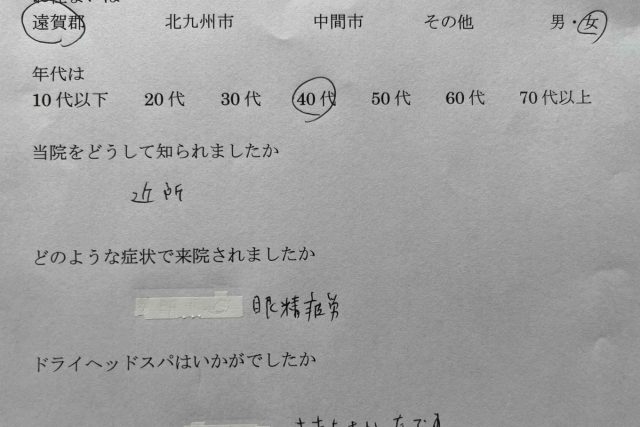 遠賀郡 北九州市 中間市 その他 男・女
年代は
10代以下 20代 30代 40代 50代 60代 70代以上
当院をどうして知られましたか
近所
どのような症状で来院されましたか
眼精疲労
ドライヘッドスパはいかがでしたか